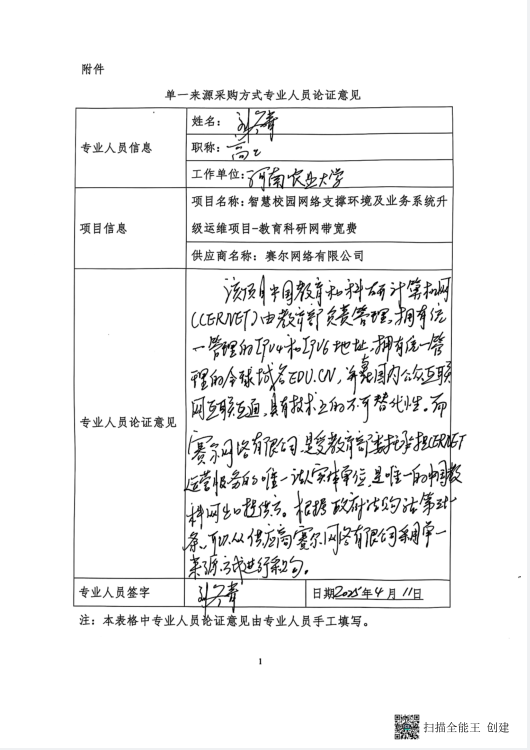 附件
单一来源采购方式专业人员论证意见
专业人员信息
姓名：
职称：高工
工作单位：河南农业大学
项目信息
项目名称：智慧校园网络支撑环境及业务系统升
级运维项目-教育科研网带宽费
供应商名称：赛尔网络有限公司
专业人员论证意见
该项目中国教育和科研计算机网
(CERNET)由教育部负责管理，拥有统
一管理的IPV4和IPV6地址，拥有统一管
理的全球域名EDU.CN，并与国内公众互联
网互联互通，具有技术上的不可替代性。而
赛尔网络有限公司，是受教育部委托承担CERNET
运营服务的唯一法人实体单位，是唯一的中国教
科网出口提供商。根据政府采购法第31
条，可以从供应商赛尔网络有限公司采用单一
来源方式进行采购。
专业人员签字
日期2025年4月11日
注：本表格中专业人员论证意见由专业人员手工填写。
1
扫描全能王 创建